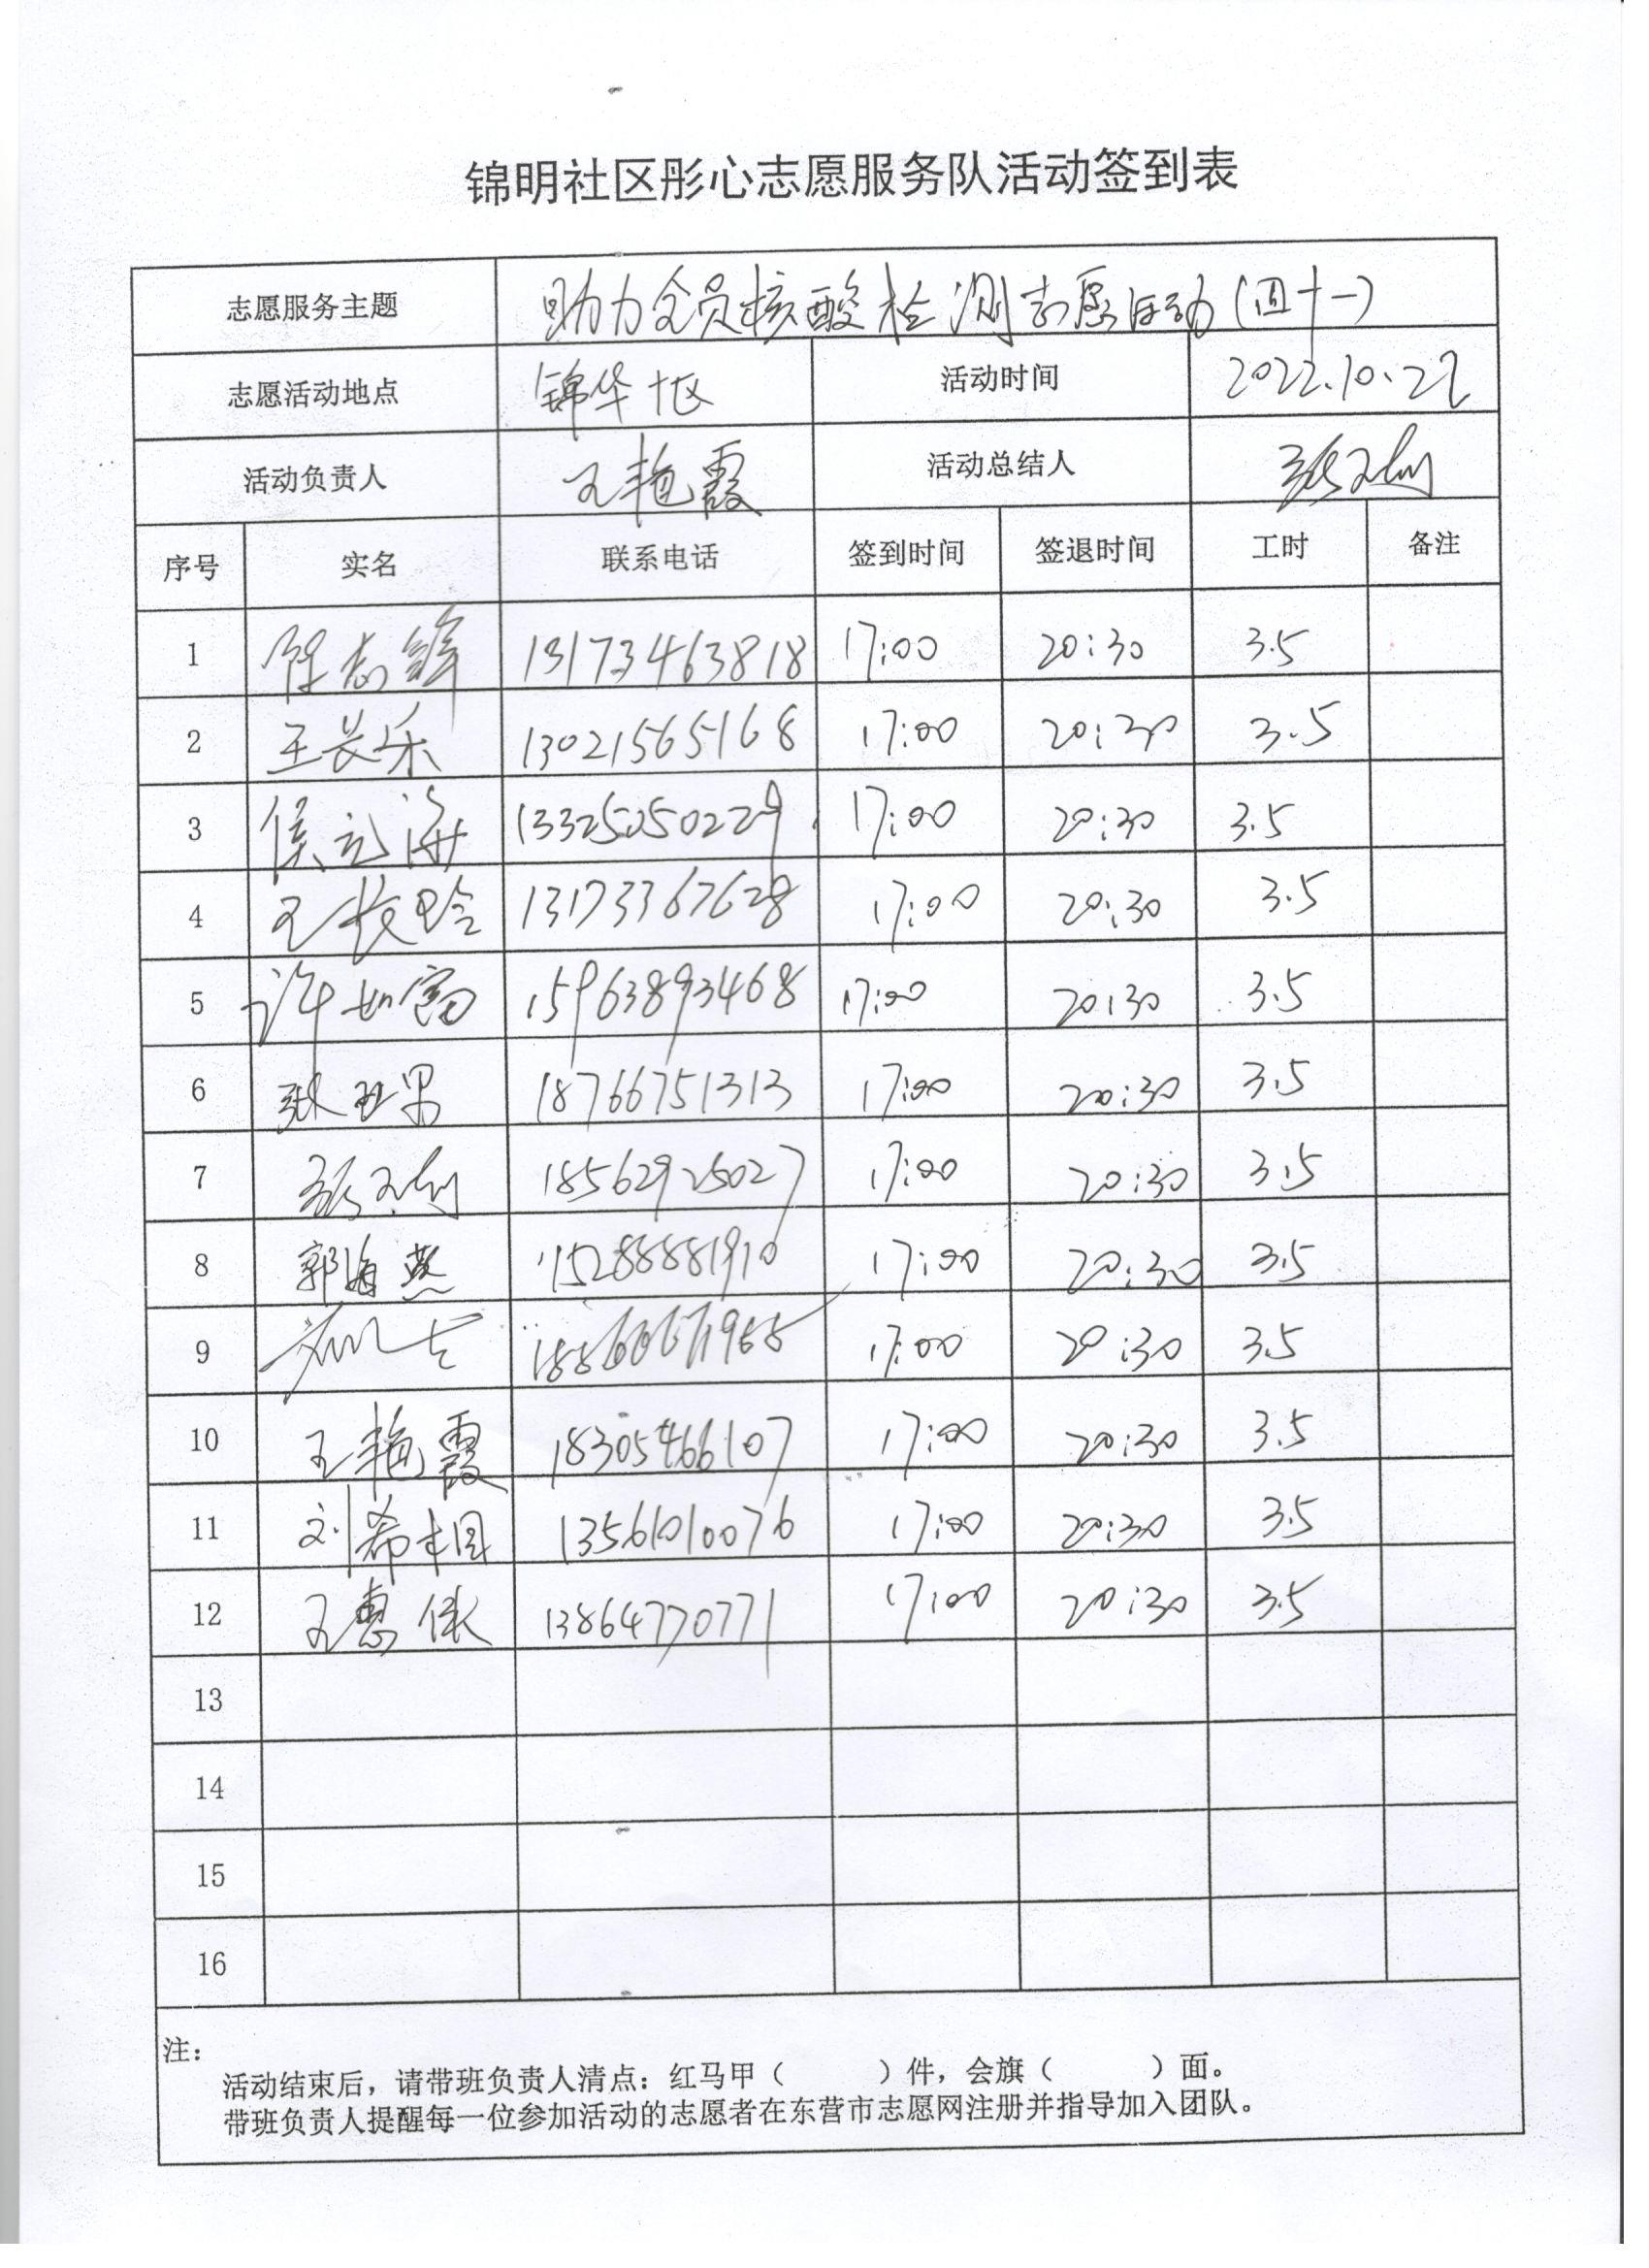 锦明社区彤心志愿服务队活动签到表
志愿服务主题 助力全员核酸检测志愿活动(四十一)
志愿活动地点 锦华十区 活动时间 2022.10.22
活动负责人 王艳霞 活动总结人
序号 实名 联系电话 签到时间 签退时间 工时 备注
1 陈志锋 13173463818 17:00 20:30 3.5
2 王长乐 13021565168 17:00 20:30 3.5
3 侯 13325050229 17:00 20:30 3.5
4 王 13173367628 17:00 20:30 3.5
5 许如富 15963893468 17:00 20:30 3.5
6 张亚男 18766751313 17:00 20:30 3.5
7 18562925027 17:00 20:30 3.5
8 郭海燕 15288881910 17:00 20:30 3.5
9 17:00 20:30 3.5
10 王艳霞 18305466107 17:00 20:30 3.5
11 刘希相 13561010076 17:00 20:30 3.5
12 王惠 13864770771 17:00 20:30 3.5
13
14
15
16
注:
活动结束后，请带班负责人清点：红马甲（ ）件，会旗（ ）面。
带班负责人提醒每一位参加活动的志愿者在东营市志愿网注册并指导加入团队。